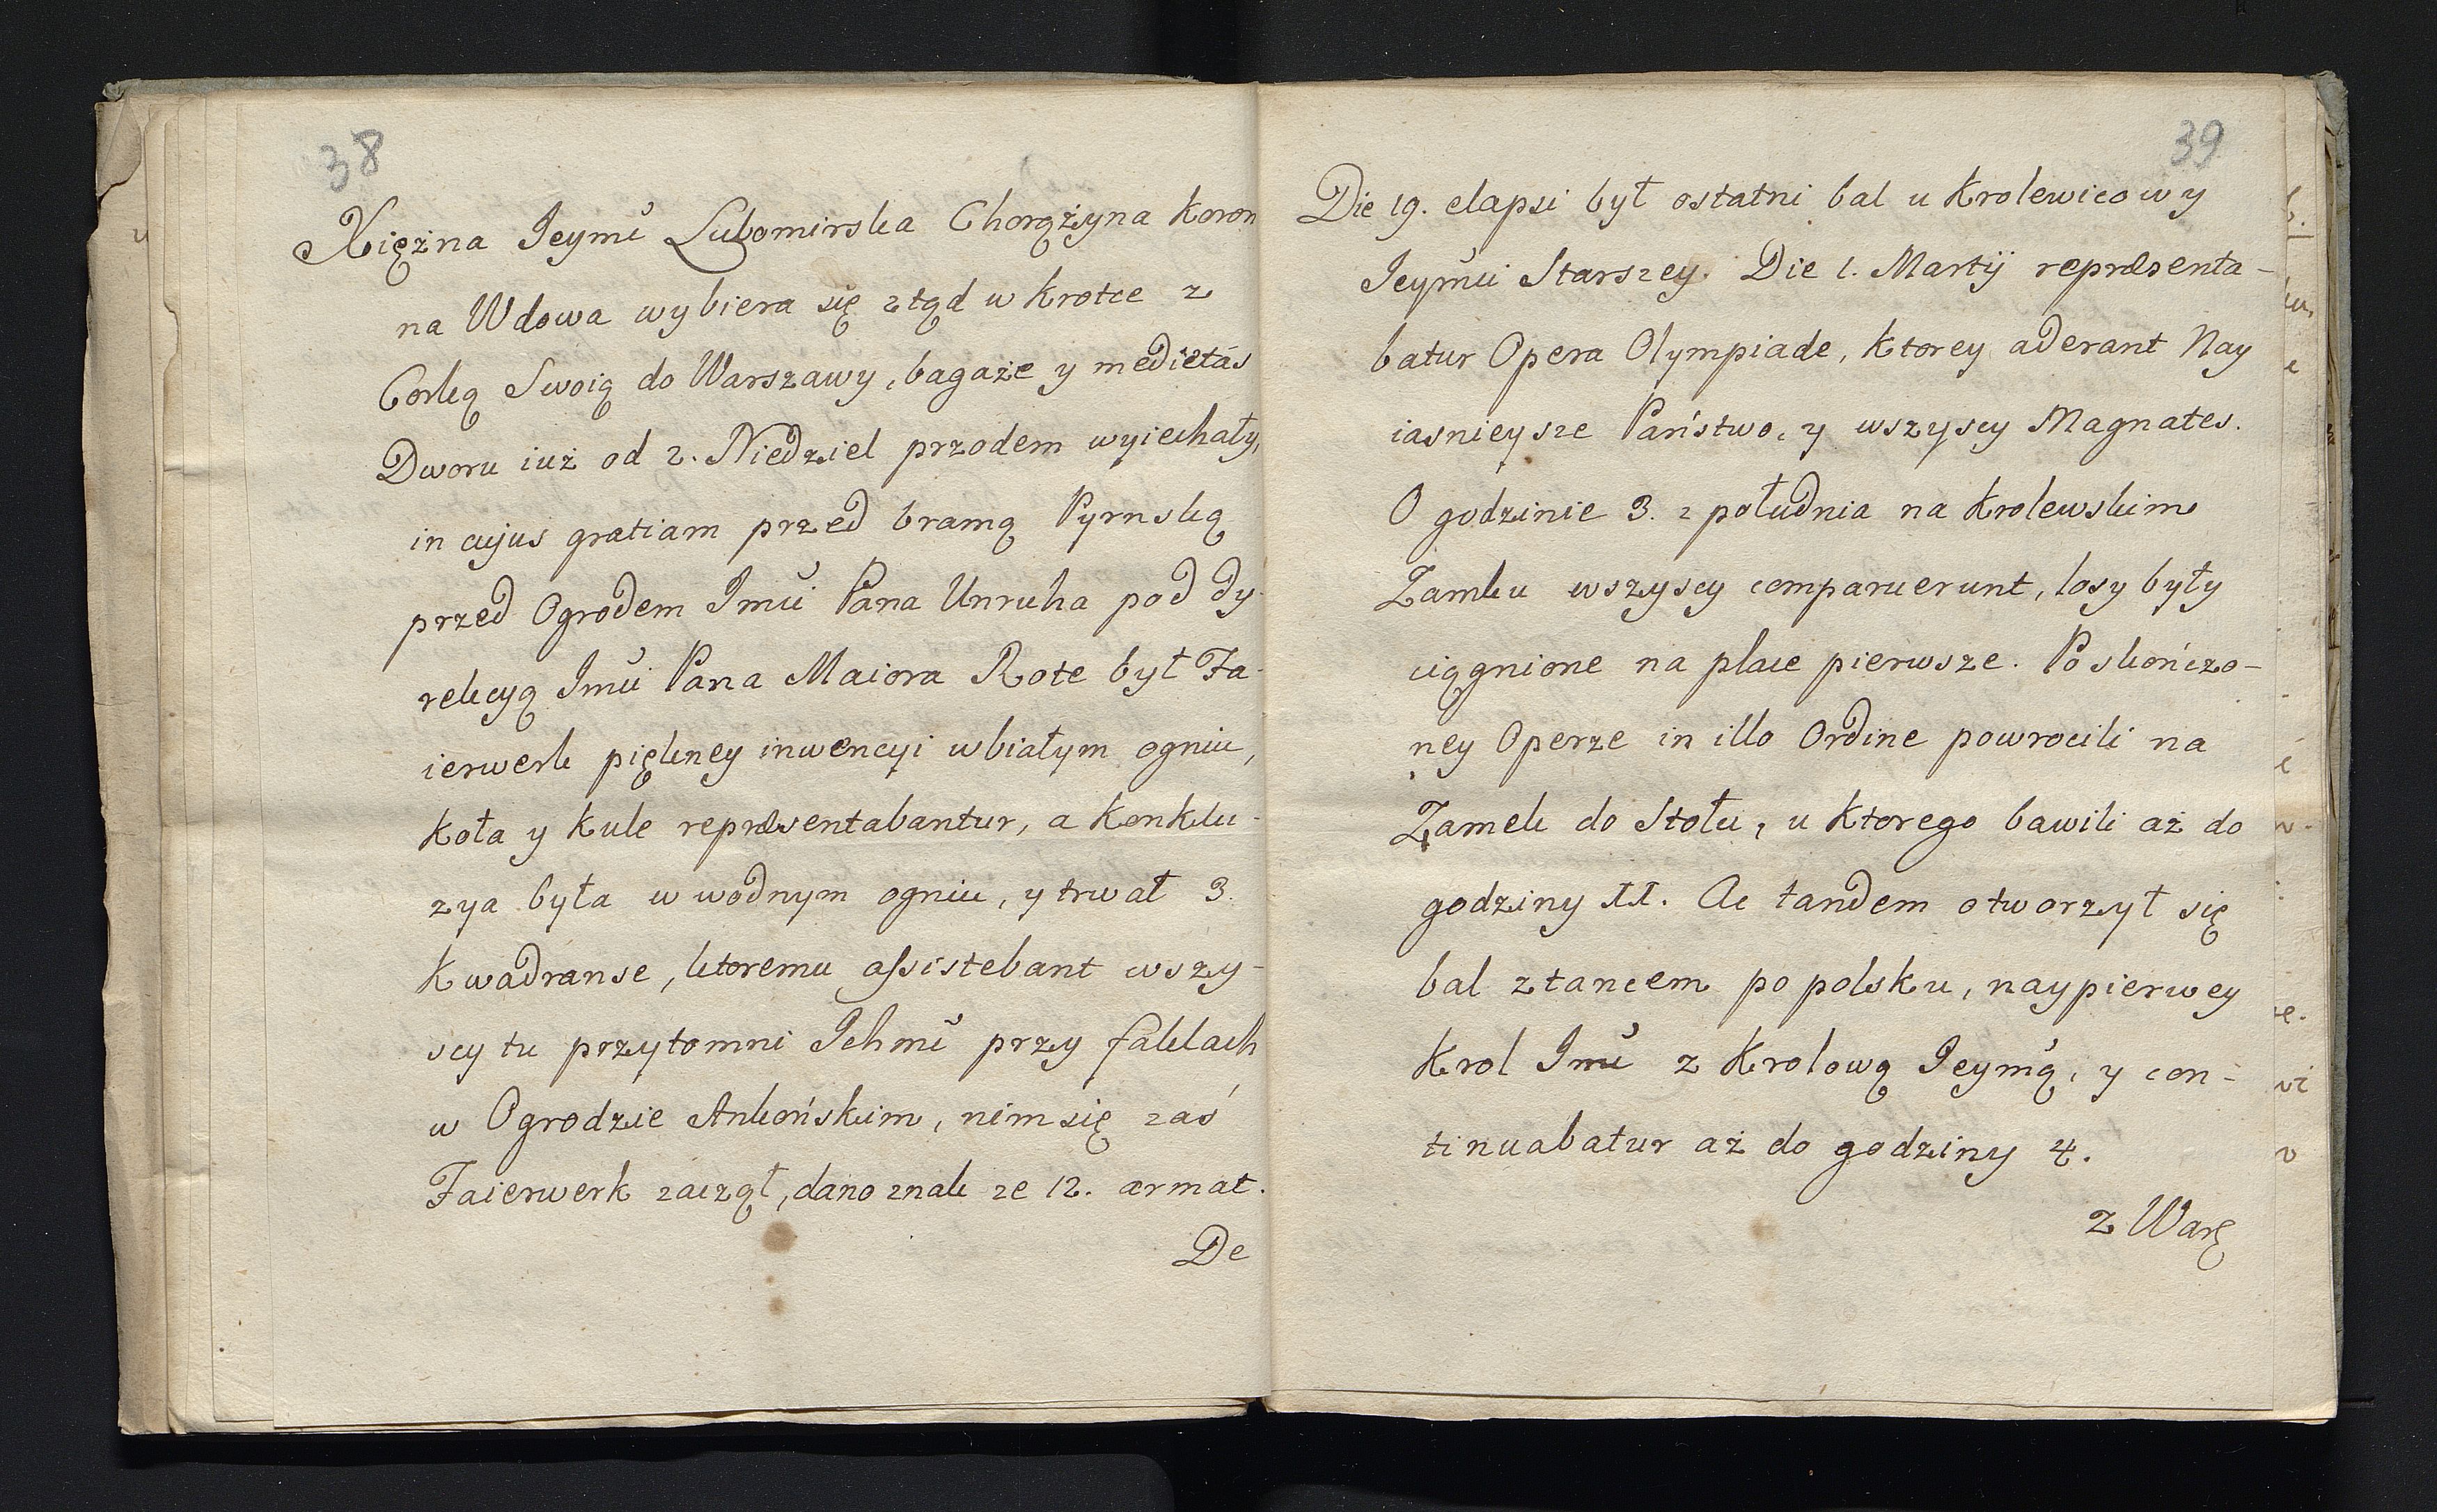 38
Xiężna Jeymć Lubomirska Chorążyna Koron
na Wdowa wybiera się ztąd w krotce z
Corką Swoią do Warszawy, bagaże y medietás
Dworu iuż od 2. Niedziel przodem wyiechały,
in cujus gratiam przed bramą Pyrnską
przed Ogrodem Jmći Pana Unruha pod dy-
rekcyą Jmći Pana Maiora Rote był Fa-
ierwerk piękney inwencyi w białym ogniu,
Koła y Kule repræsentabantur, a Konklu-
zya była w wodnym ogniu, y trwał 3.
Kwadranse, ktoremu assistebant wszy-
scy tu przytomni Ichmć przy faklach
w Ogrodzie Ankońskim, nim się zaś
Faierwerk zaczął, dano znak ze 12. armat.
De
39
Die 19. elapsi był ostatni bal u Krolewicowy
Jeymći Starszey. Die 1. Martij repræsenta-
batur Opera Olympiade, Ktorey aderant Nay
iasnieysze Państwo, y wszyscy Magnates.
O godzinie 3. z południa na Krolewskim
Zamku wszyscy comparuerunt, losy były
ciągnione na place pierwsze. Po skończo-
ney Operze in illo Ordine powrocili na
Zamek do Stołu, u Ktorego bawili aż do
godziny II. Ac tandem otworzył się
bal z tancem po polsku, naypierwey
Krol Jmć z Krolową Jeymćą, y con-
tinuabatur aż do godziny 4.
Z Warß